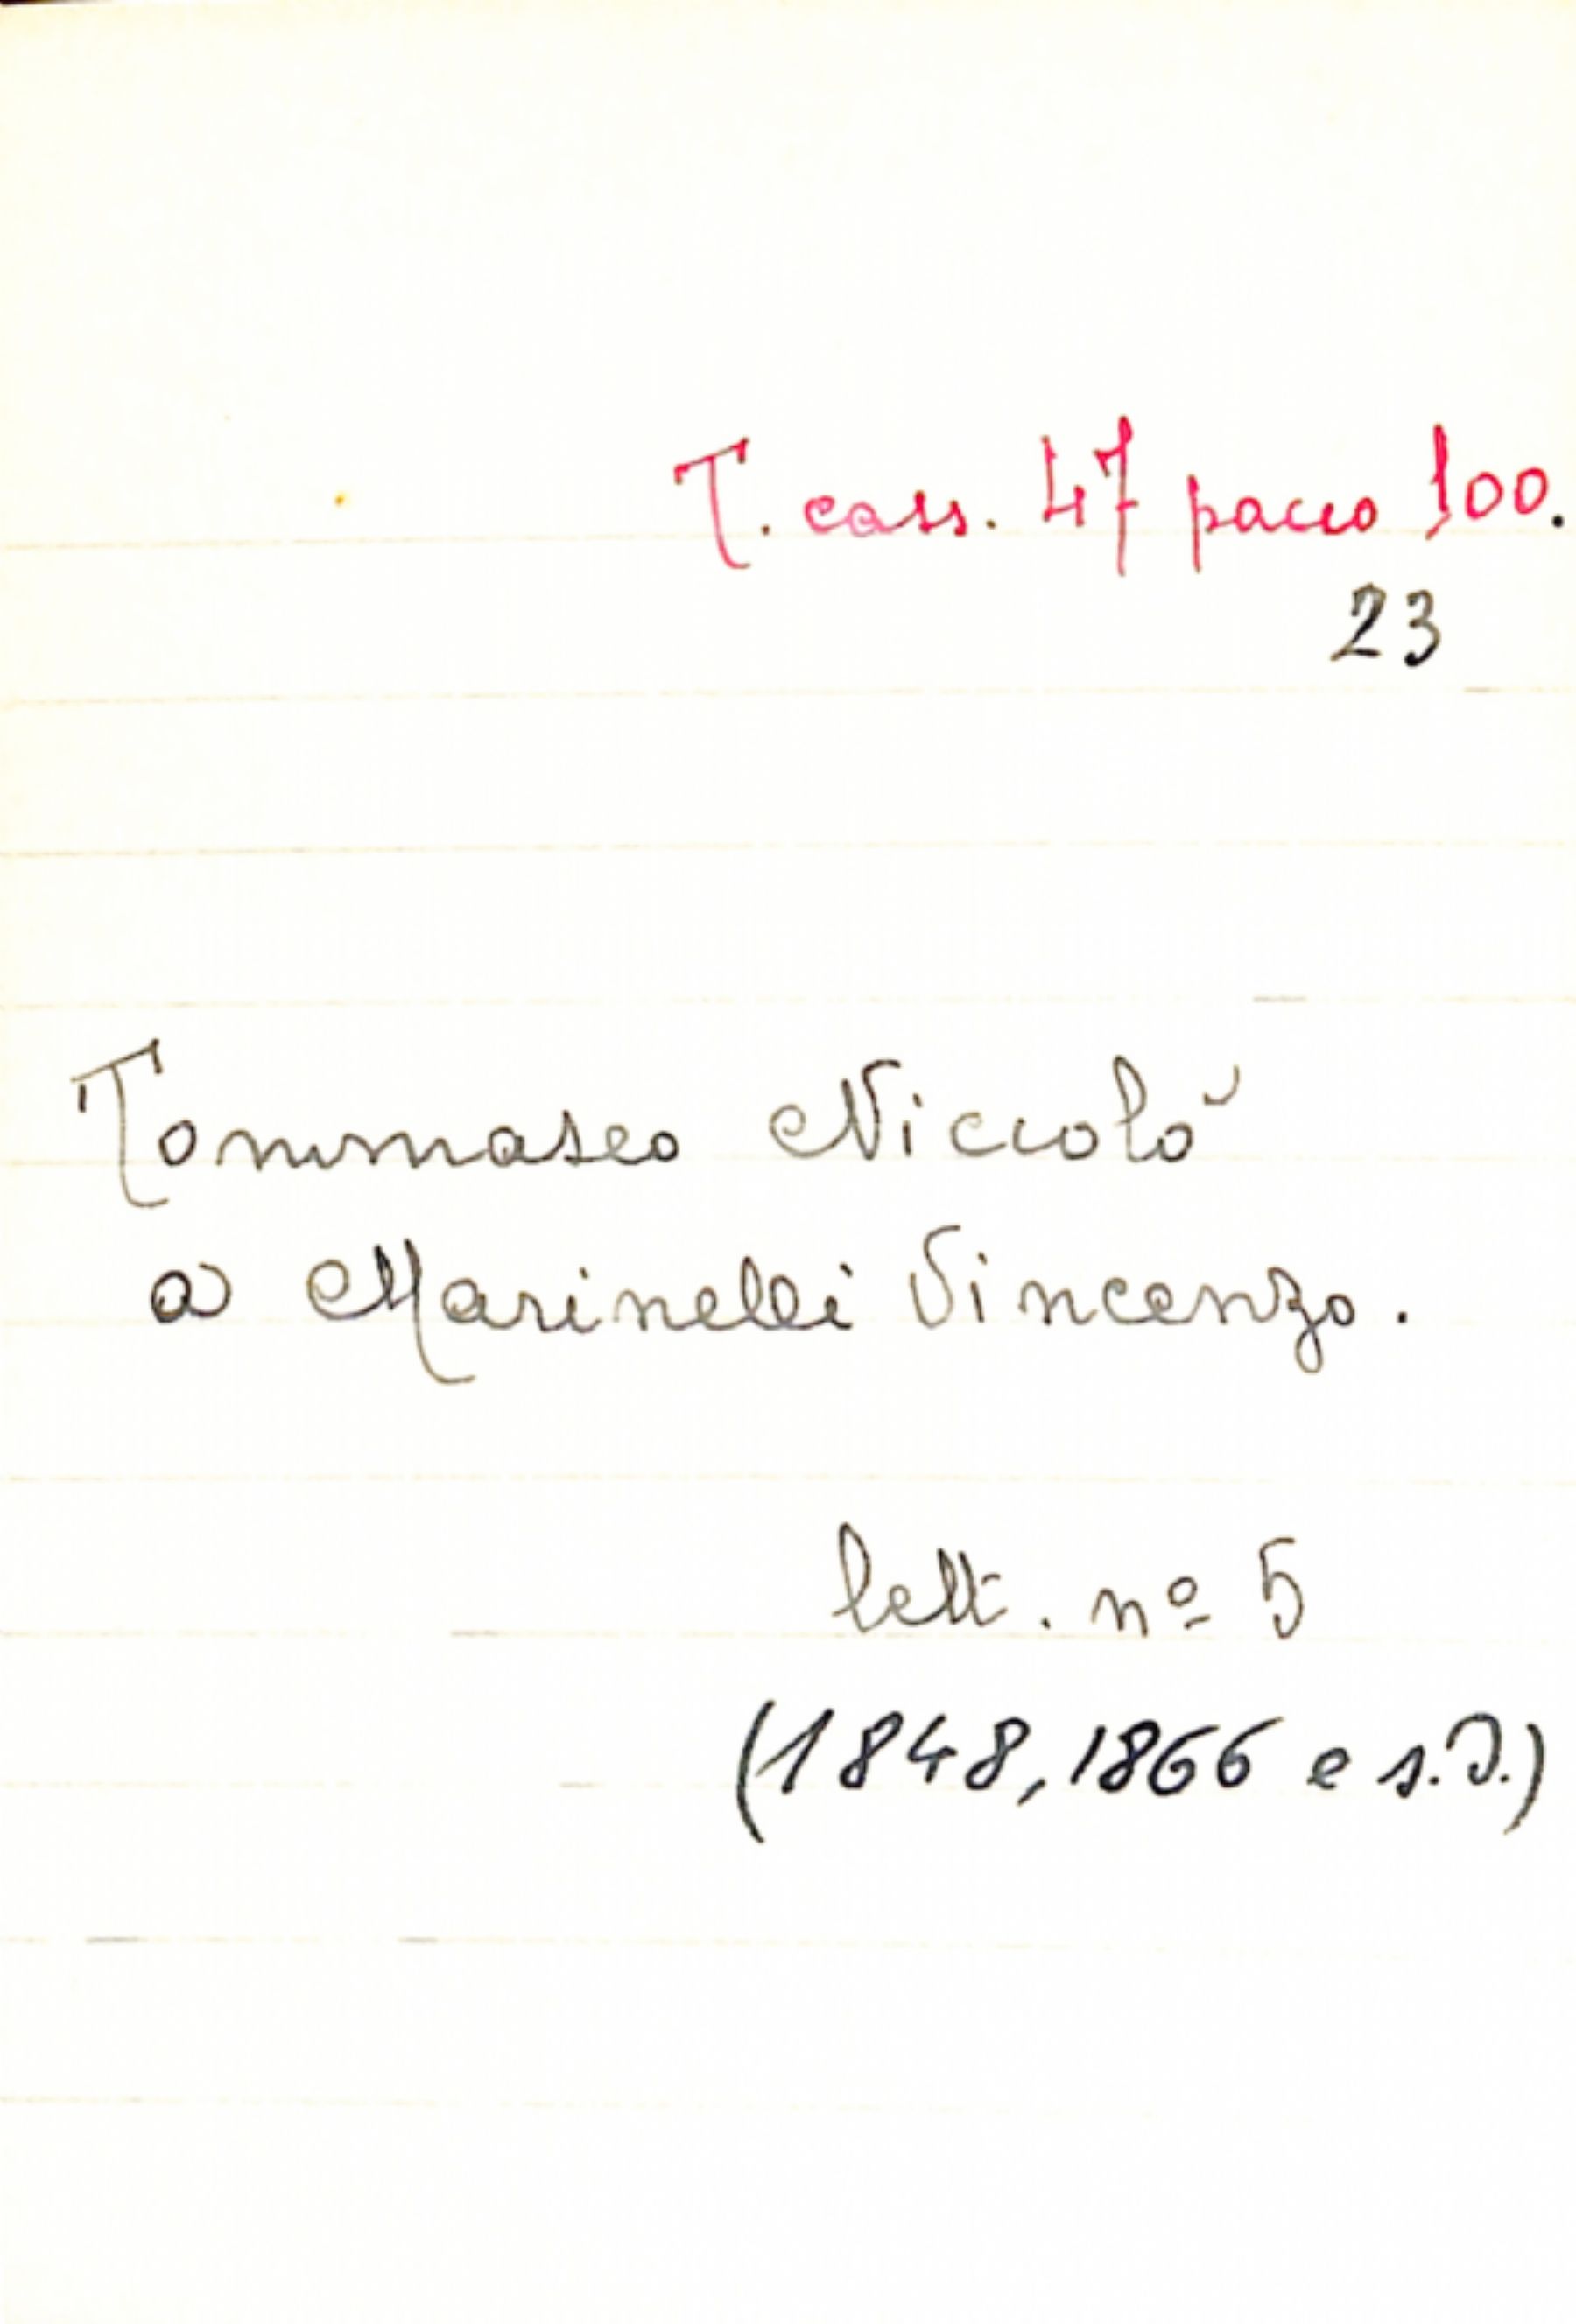 T. cass. 47 pacco 100.
23
Tommaseo Niccolò
a Marinelli Vincenzo.
lett. nº 5
(1848, 1866 e s.d.)